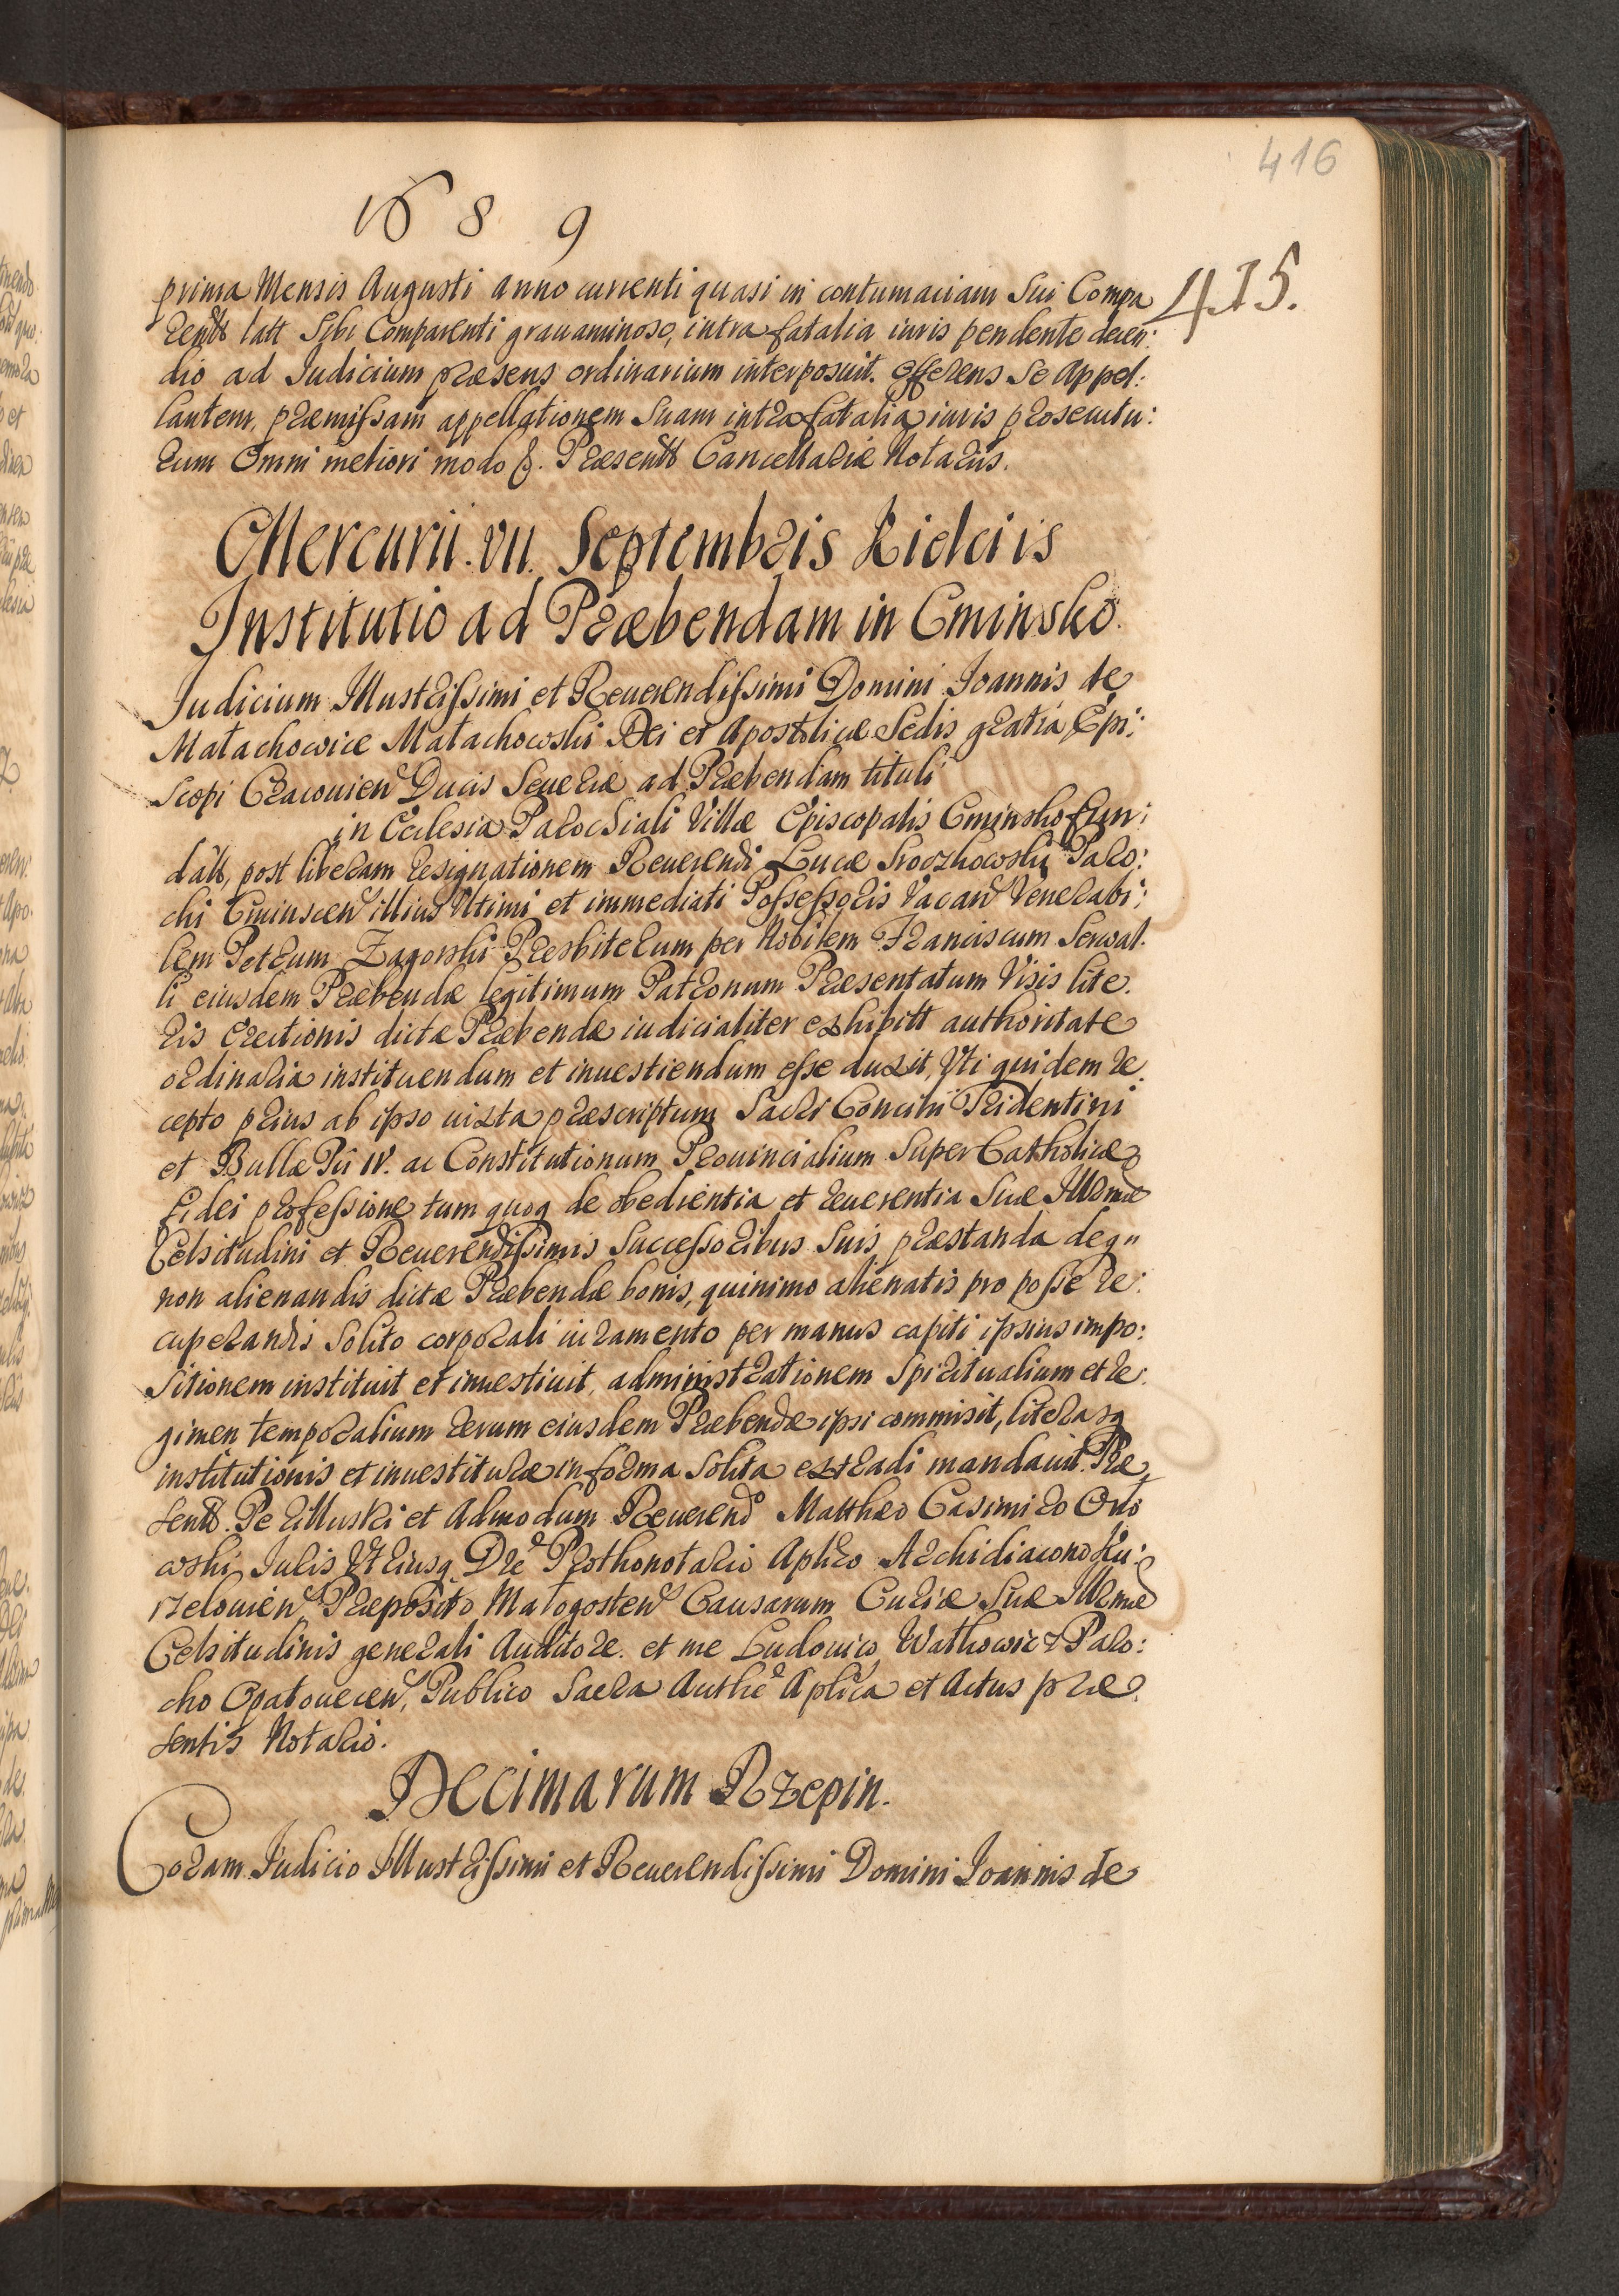 416
1689
415.
prima Mensis Augusti anno currenti quasi in contumaciam sui Compa
rentt latt sibi Comparenti grauaminose, intra fatalia iuris pendente decen:
dio ad Iudicium præsens ordinarium interposuit. offerens se Appel:
lantem, præmissam appellationem suam intra fatalia iuris prosecutu:
rum Omni meliori modo &. Præsentt Cancellariæ Notariis.
Mercurii. vii. Septembris Kielciis
Institutio ad Præbendam in Cminsko.
Judicium Illustrissimi et Reuerendissimi Domini Joannis de
Małachowice Małachowski Dei et Apostolicæ Sedis gratia Epi:
scopi Cracouien Ducis Seueriæ ad Præbendam tituli
in Ecclesia Parochiali Villæ Episcopalis Cminsko fun:
datt, post liberam resignationem Reuerendi Lucæ Srodzkowski Paro:
chi Cminscen illius Vltimi et immediati Possessoris Vacan Venerabi:
lem Petrum Zagorski Præsbiterum per Nobilem Franciscum Serwal.
li eiusdem Præbendæ legitimum Patronum Præsentatum Visis lite.
ris Erectionis dictæ Præbendæ iudicialiter exhibitt authoritate
ordinaria instituendum et inuestiendum esse duxit, Vti quidem re
cepto prius ab ipso iuxta præscriptum Sacri Concilii Tridentini
et Bullæ Pii IV. ac Constitutionum Prouincialium super Catholicæ
fidei professione tum quoq de obedientia et reuerentia Suæ Illrmæ
Celsitudini et Reuerendissimis Successoribus suis præstanda deq
non alienandis dictæ Præbendæ bonis, quinimo alienatis pro posse re:
cuperandis solito corporali iuramento per manus capiti ipsius impo:
sitionem instituit et inuestiuit, administrationem spiritualium et re:
gimen temporalium rerum eiusdem Præbendæ ipsi commisit, literasq
institutionis et inuestituræ in forma solita extradi mandauit. Præ
sentt. Perillustri et Admodum Reuerend Matthæo Casimiro Orło
wski Iuris Vtriusq Dre Prothonotario Aplico Archidiacono Ku:
rzelouien Præposito Małogosten Causarum Curiæ Suæ Illrmæ
Celsitudinis generali Auditore. et me Ludouico Wathowicz Paro:
cho Opatouecen, Publico Sacra Authe Aplica et Actus præ
sentis Notario.
Decimarum Rzepin.
Coram Iudicio Illustrissimi et Reuerendissimi Domini Joannis de